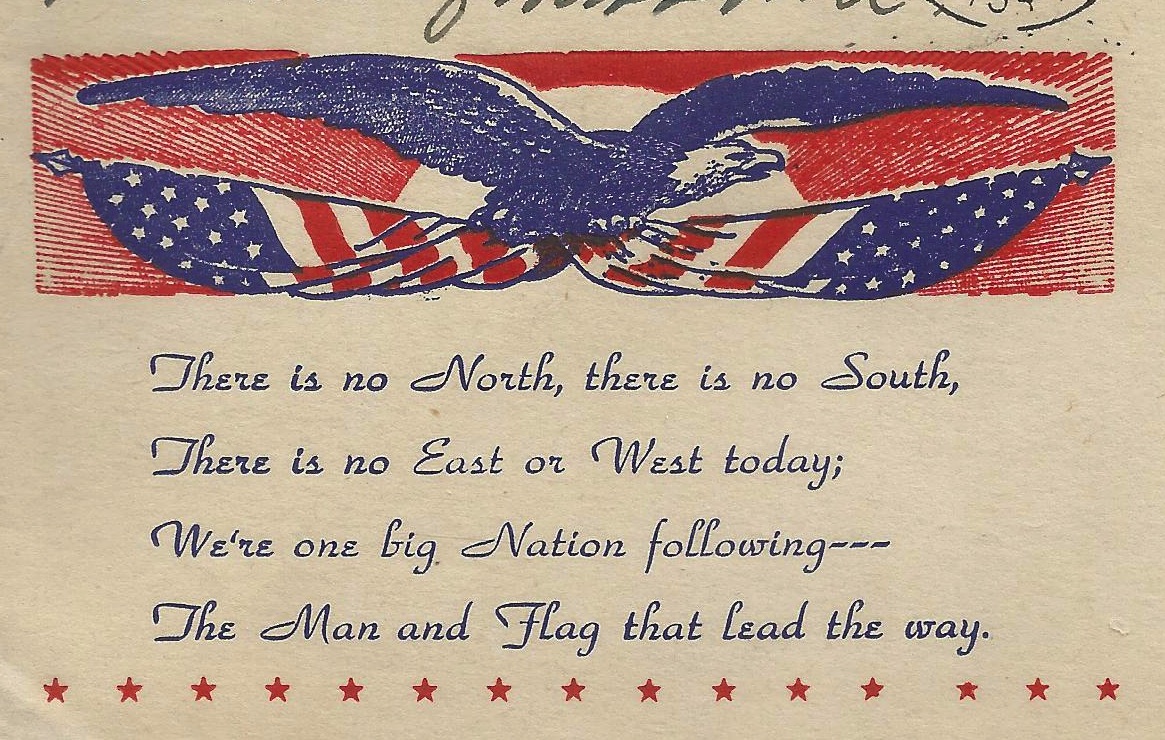 There is no North, there is no South,
There is no East or West today;
We're one big Nation following---
The Man and Flag that lead the way.